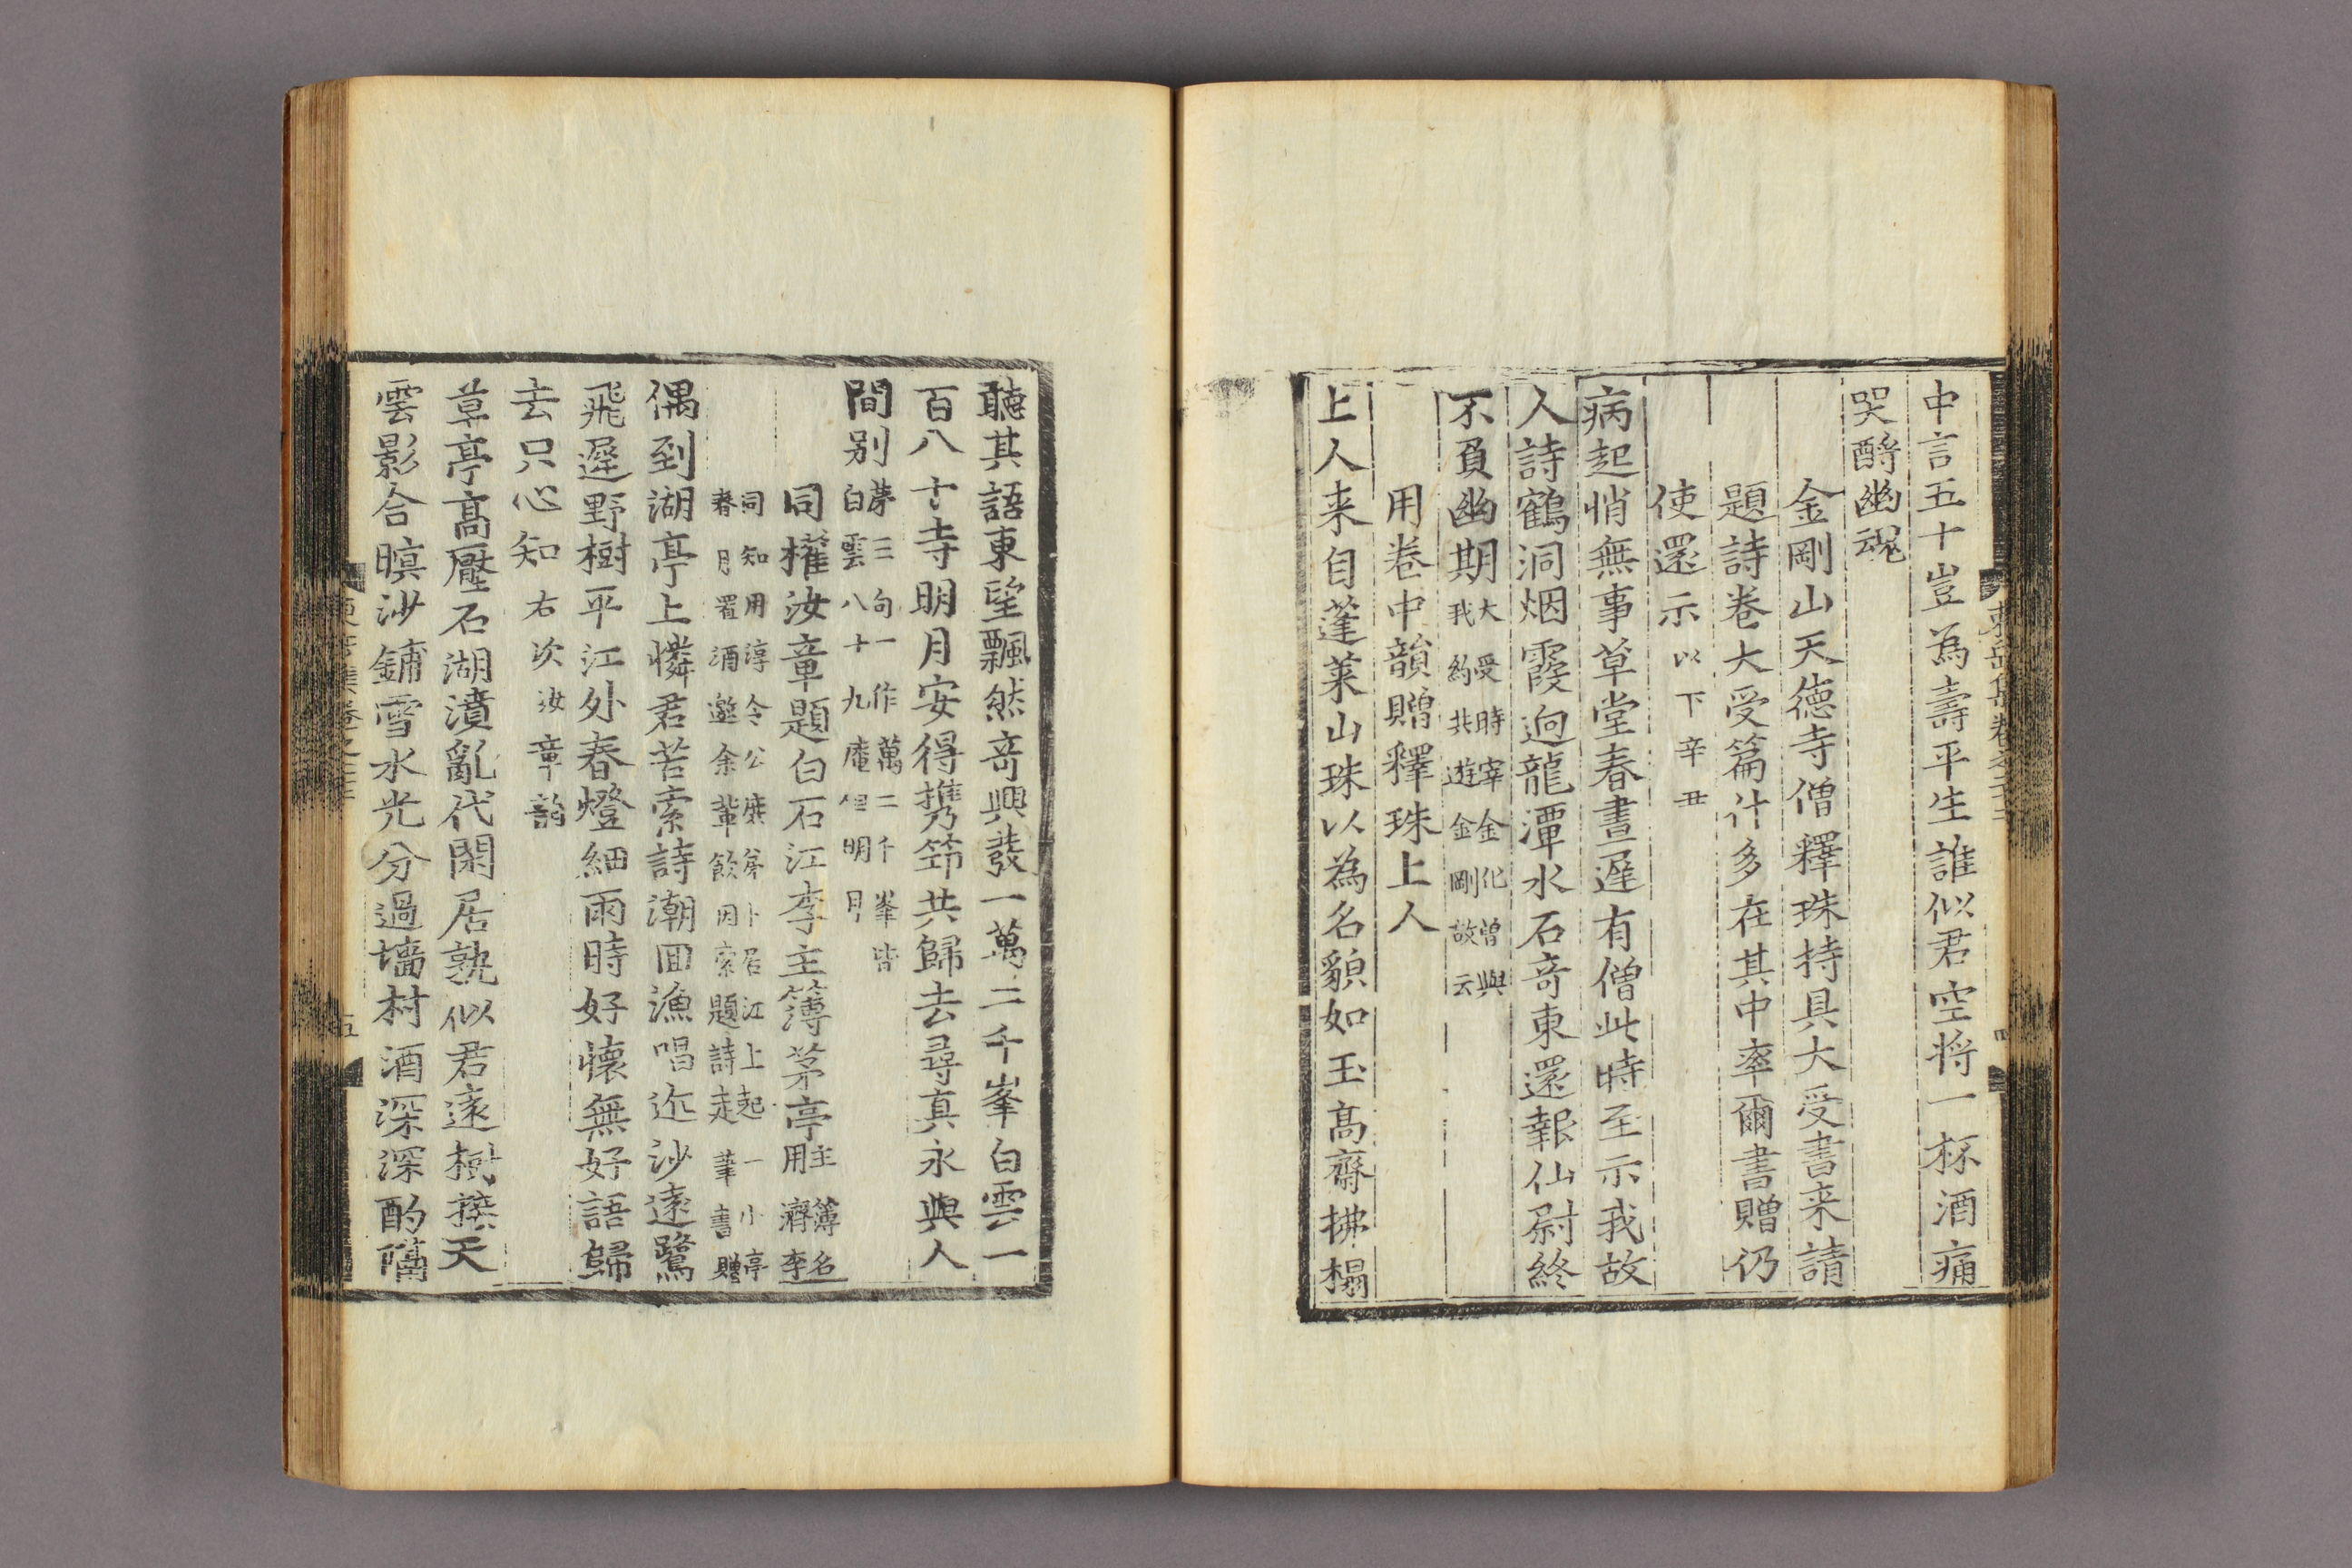 中言五十豈為壽平生誰似君空将一杯酒痛
哭酹幽魂
金剛山天德寺僧釋珠持具大受書来請
題詩卷大受篇什多在其中率爾書贈仍
使還示以下辛丑
病起悄無事草堂春晝遲有僧此時至示我故
人詩鶴洞烟霞逈龍潭水石竒東還報仙尉終
不負幽期大受時宰金化曽與
我約共遊金剛故云
用卷中韻贈釋珠上人
上人来自蓬莱山珠以為名貌如玉高齋拂榻
聽其語東望飄然竒興發一萬二千峯白雲一
百八十寺明月安得携笻共歸去尋真永與人
間别第三句一作萬二千峯皆
白雲八十九庵但明月
同權汝章題白石江李主簿茅亭主簿名
用濟李
同知用淳令公庶弟卜居江上起一小亭
春月置酒邀余輩飲因索題詩走筆書贈
偶到湖亭上憐君苦索詩潮回漁唱近沙遠鷺
飛遲野樹平江外春燈細雨時好懷無好語歸
去只心知右次汝章韵
草亭高壓石湖濆亂代閑居孰似君遠樹接天
雲影合暝沙鋪雪水光分過墻村酒深深酌隔